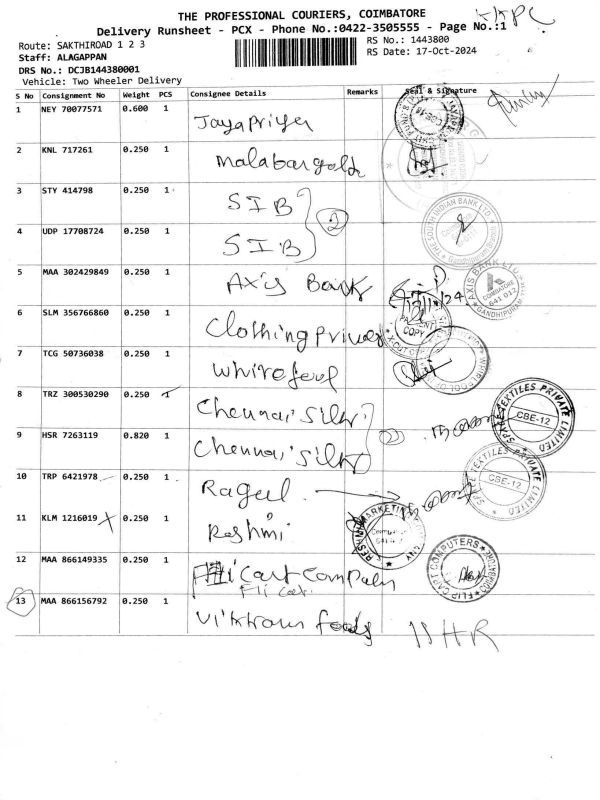 THE PROFESSIONAL COURIERS, COIMBATORE
Delivery Runsheet - PCX - Phone No.:0422-3505555 - Page No.:1
Route: SAKTHIROAD 1 2 3
RS No.: 1443800
Staff: ALAGAPPAN
RS Date: 17-Oct-2024
DRS No.: DCJB144380001
Vehicle: Two Wheeler Delivery
S No Consignment No Weight PCS Consignee Details Remarks Seal & Signature
1 NEY 70077571 0.600 1 Jayapriya
2 KNL 717261 0.250 1 Malabargold
3 STY 414798 0.250 1 SIB
2
4 UDP 17708724 0.250 1 SIB
5 MAA 302429849 0.250 1 Axis Bank
6 SLM 356766860 0.250 1 Clothing
7 TCG 50736038 0.250 1
8 TRZ 300530290 0.250 1 Chennai Silk
9 HSR 7263119 0.820 1 Chennai Silk
10 TRP 6421978 0.250 1
11 KLM 1216019 0.250 1 Reshmi
12 MAA 866149335 0.250 1 Cart Company
Fli Cart
13 MAA 866156792 0.250 1 Vikkram foods
THE SOUTH INDIAN BANK LTD.
AXIS BANK LTD
COIMBATORE
641 012
GANDHIPURAM
COPY
SPARE TEXTILES PRIVATE LIMITED
CBE-12
SPARE TEXTILES PRIVATE LIMITED
CBE-12
FLIP CART COMPUTERS